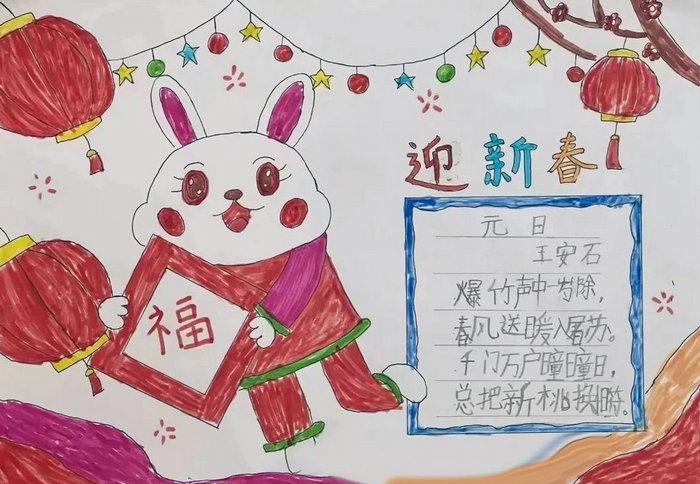 迎新春
福
元日
王安石
爆竹声中一岁除，
春风送暖入屠苏。
千门万户瞳瞳日，
总把新桃换旧符。